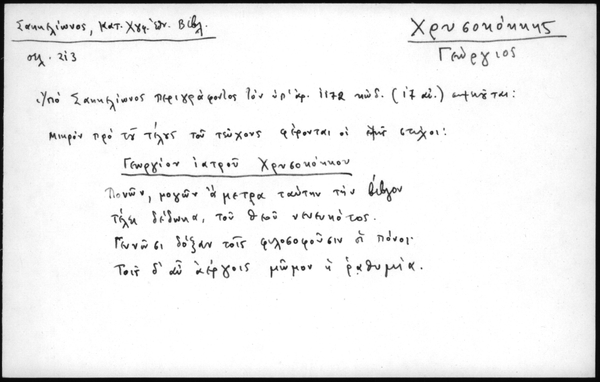 Σακκελίωνος, Κατ. Χγφ. Ἐθν. Βιβλ.
Χρυσοκόκκης
Γεώργιος
σελ. 213
Ὑπὸ Σακκελίωνος περιγράφοντος τὸν ὑπ' ἀρ. 1172 κώδ. (17 αἰ.) σημειοῦται:
Μικρὸν πρὸ τοῦ τέλους τοῦ τεύχους φέρονται οἱ ἑξῆς στίχοι:
Γεωργίου ἰατροῦ Χρυσοκόκκου
Πονῶν, μογῶν ἄμετρα ταύτην τὴν βίβλον
Τέλει δέδωκα, τοῦ θεοῦ νενευκότος.
Γεννῶσι δόξαν τοῖς φιλοσοφοῦσιν οἱ πόνοι.
Τοῖς δ' αὖ ἀέργοις μῶμον ἡ ῥαθυμία.